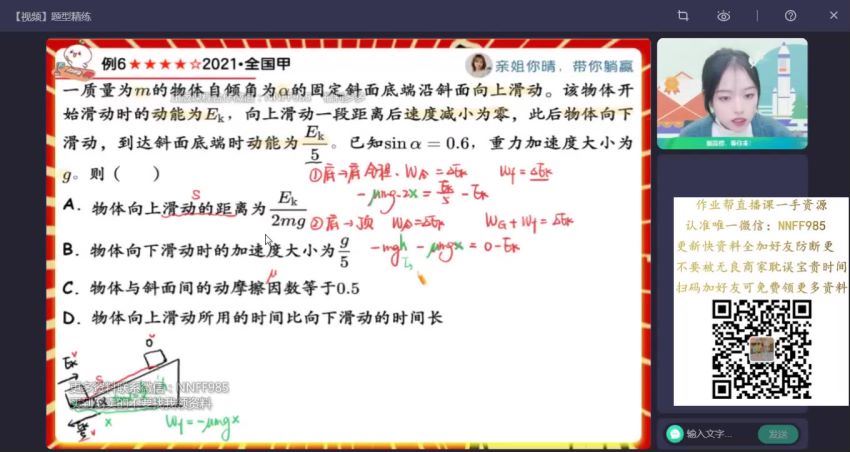 【视频】题型精练
例6 ★★★★☆ 2021·全国甲
亲姐你晴，带你躺赢
一质量为m的物体自倾角为α的固定斜面底端沿斜面向上滑动。该物体开
始滑动时的动能为Eₖ，向上滑动一段距离后速度减小为零，此后物体向下
滑动，到达斜面底端时动能为Eₖ/5。已知sinα=0.6，重力加速度大小为
g。则（ ）
①底→底 全程. W合=ΔEk Wf=ΔEk
-μmg·2x=Ek/5-Ek
S
A. 物体向上滑动的距离为Eₖ/2mg
②底→顶 W合=ΔEk WG+Wf=ΔEk
-mgh-μmgx=0-Ek
B. 物体向下滑动时的加速度大小为g/5
μ
C. 物体与斜面间的动摩擦因数等于0.5
D. 物体向上滑动所用的时间比向下滑动的时间长
0
Ek
S
h
更多资料联系微信：NNFF985
x
Wf=-μmgx
作业帮直播课一手资源
认准唯一微信：NNFF985
更新快资料全加好友防断更
不要被无良商家耽误宝贵时间
扫码加好友可免费领更多资料
输入文字...
发送